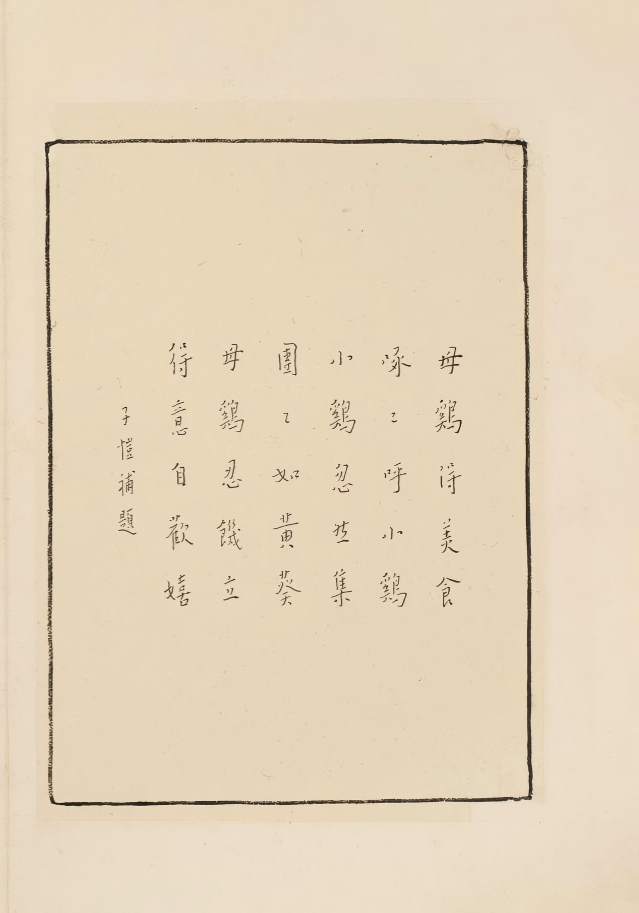 母鷄得美食
啄〻呼小鷄
小鷄忽然集
團〻如黃葵
母鷄忍饑立
得意自歡嬉
子愷補題